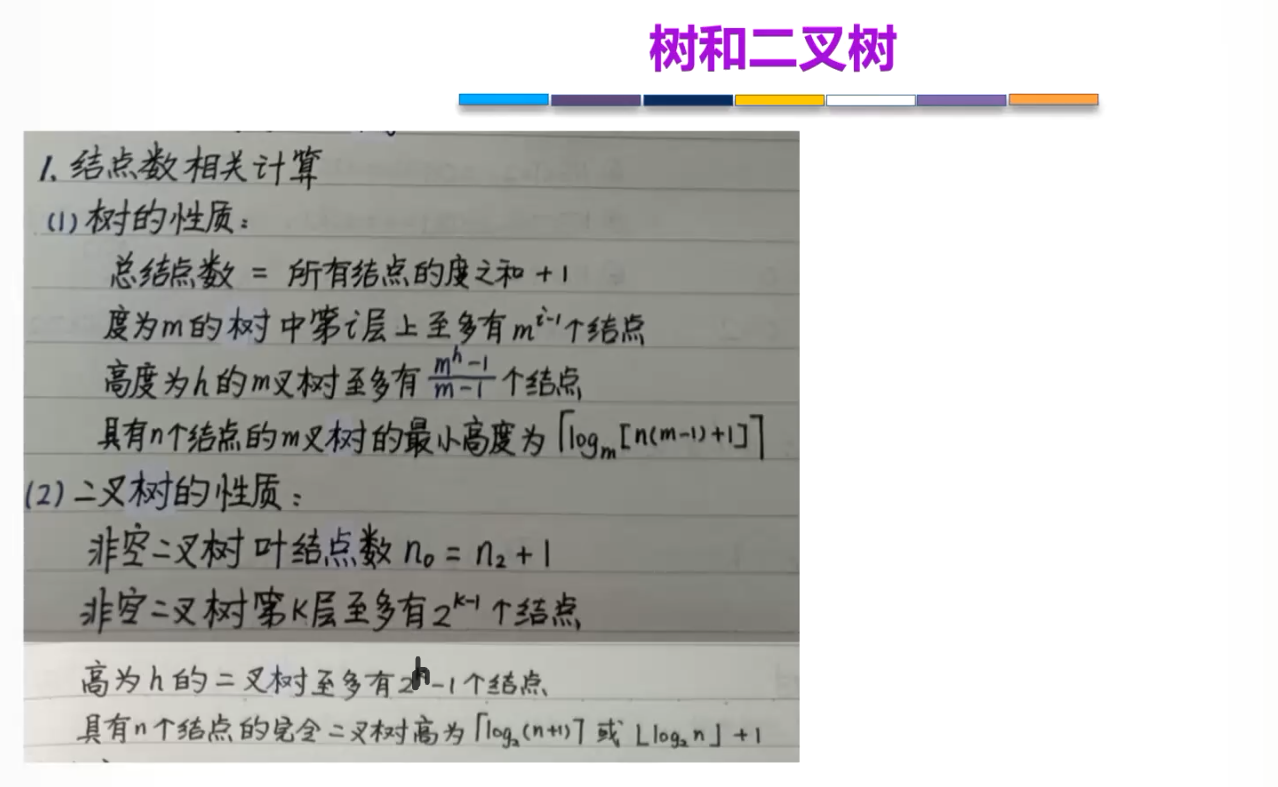 树和二叉树
1. 结点数相关计算
(1) 树的性质：
总结点数 = 所有结点的度之和 + 1
度为m的树中第i层上至多有 m^{i-1} 个结点
高度为h的m叉树至多有 \frac{m^h-1}{m-1} 个结点
具有n个结点的m叉树的最小高度为 ⌈log_m[n(m-1)+1]⌉
(2) 二叉树的性质：
非空二叉树叶结点数 n₀ = n₂ + 1
非空二叉树第K层至多有 2^{K-1} 个结点
高为h的二叉树至多有 2^h-1 个结点
具有n个结点的完全二叉树高为 ⌈log₂(n+1)⌉ 或 ⌊log₂n⌋ + 1